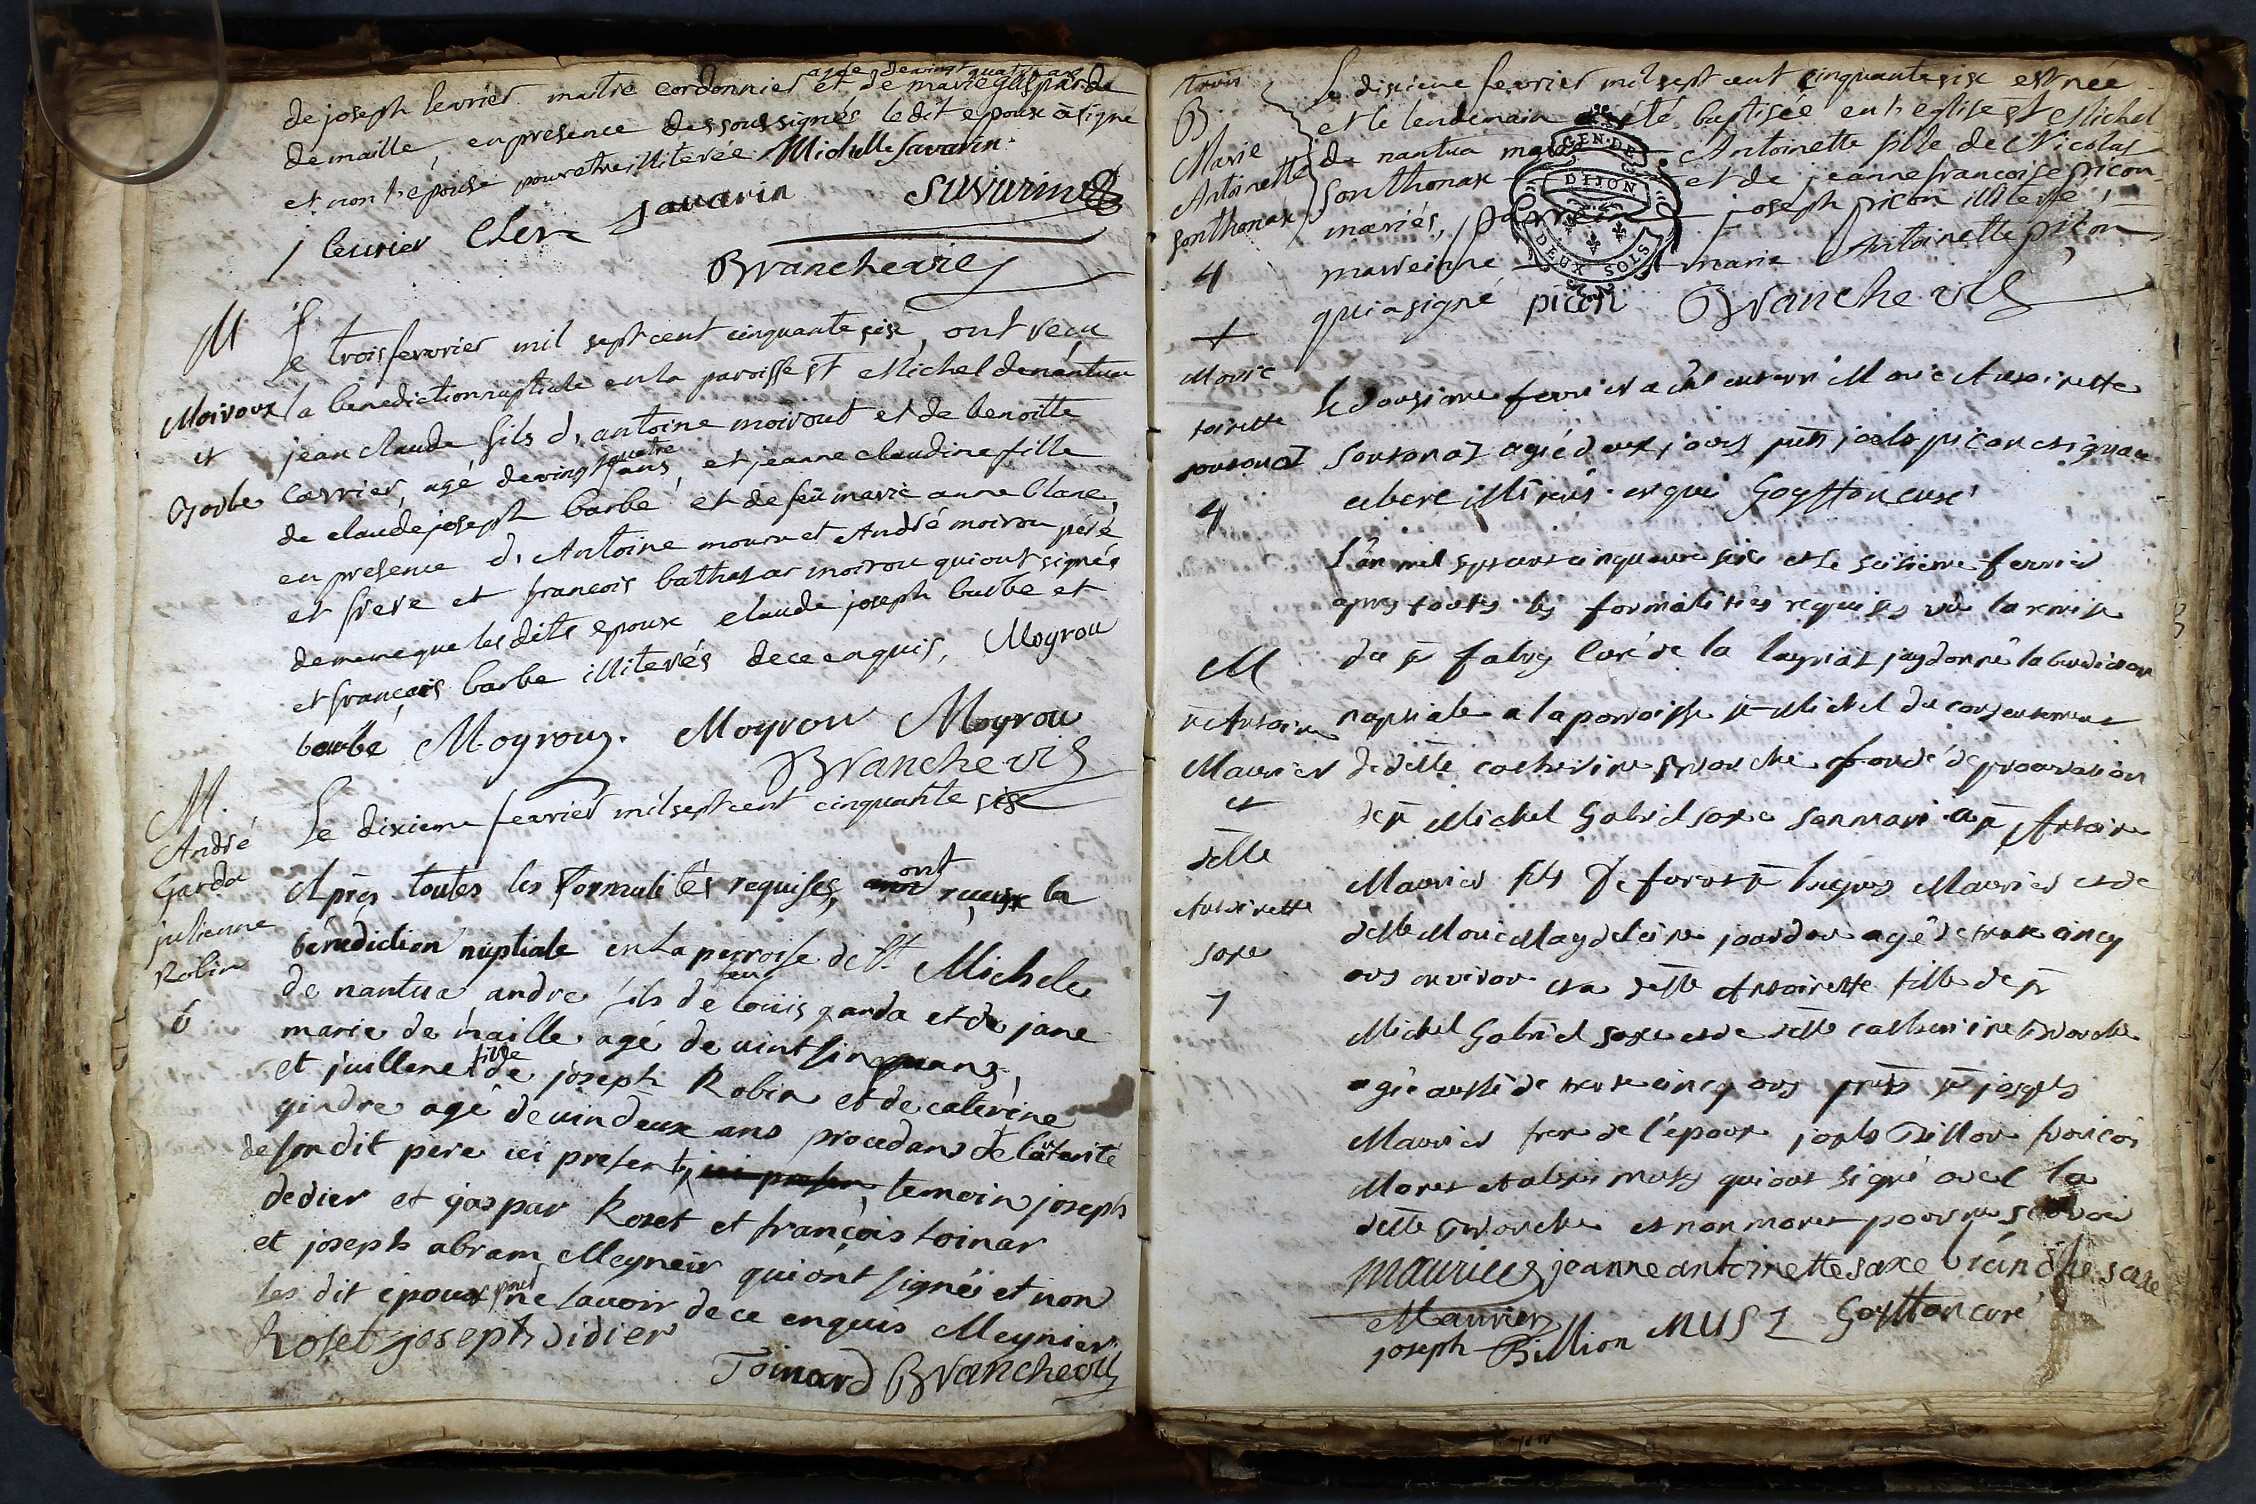 agée de vingt quatre ans
de joseph levrier maitre cordonnier et de marie gasparde
demaille, en presence des soussignés le dit epoux à signé
et non l'epouse pour etre illiterée Michelle Savarin
levrier Clerc savarin Suvurin
Brancheviel
M
Moiroux
et
Barbe
Le trois fevrier mil sept cent cinquante six, ont reçu
la benediction nuptiale en la paroisse St Michel de nantua
jean claude fils d'antoine moirout et de benoitte
Carrier, agé de vingt quatre ans, et jeanne claudine fille
de claude joseph barbe et de feu marie anne blanc,
en presence d'Antoine mourou et André moirou peré
et frere et francois balthazar moirou qui ont signés
de meme que les dits epoux claude joseph barbe et
et françois barbe illiterés de ce enquis, Moyrou
barbé Moyroug. Moyrou Moyrou
Brancheviel
M.
André
Garda
julienne
Robin
6
Le dixieme fevrier mil sept cent cinquante sise
Après toutes les formalités requises, ont rueux la
bénédiction nuptiale en La perroise de St. Michele
de nantua andre fils de feu louis garda et de jane
marie de maille agé de uint sinq ans,
et juillene fille de joseph Robin et de caterine
gindre agé de uin deux ans procedans de l'autorité
de son dit père ici present, temoin joseph
dedier et gaspar Roset et françois toinar
et joseph abram Meyneir qui ont signéé et non
les dit époux pour ne savoir de ce enquis Meynier
Roset joseph didier
Toinard Brancheviel
trois
B.
Marie
Antoinette
Sonthonax
4
Le dixieme fevrier mil sept cent cinquante six est née
et le lendemain a été baptisée en l'eglise St Michel
de nantua marie Antoinette fille de Nicolas
Sonthonax et de jeanne francoise picon
mariés, parrein joseph picon illiteré,
marreinne marie Antoinette picon
qui a signé picon Brancheviel
GEN. DE
DIJON
DEUX SOLS
+
Marie
toinette
sontonaz
4
le dousieme fevrier a été enterré Marie Antoinette
Sontonaz agée deux jours pnts josph picon et ignace
ebere illiterés enquis Goyffon curé
M
Sr Antoine
Maurier
et
delle
Antoinette
saxe
7
L'an mil sept cent cinquante six et le seisieme fevrier
apres toutes les formalités requises vu la remise
du sr fabry Curé de la layriat jay donné la benediction
nuptiale a la parroisse st Michel du consentement
de delle catherine branche fondé de procuration
de sr Michel Gabriel saxe son mari a sr Antoine
Maurier fils de furent sr hugues Maurier et de
delle Marie Magdeleine jourdan agé de trante cinq
ans environ et a delle Antoinette fille de sr
Michel Gabriel saxe et de delle catherine branche
agée aussi de trente cinq ans pnts sr joseph
Maurier frere de l'époux josph Billion françois
Moret et alexis musy qui ont signé avec la
delle branche et non moret pour ne sçavoir
Maurier jeanne antoinette saxe branche saxe
Maurier
joseph Billion MUSI Goyffon curé